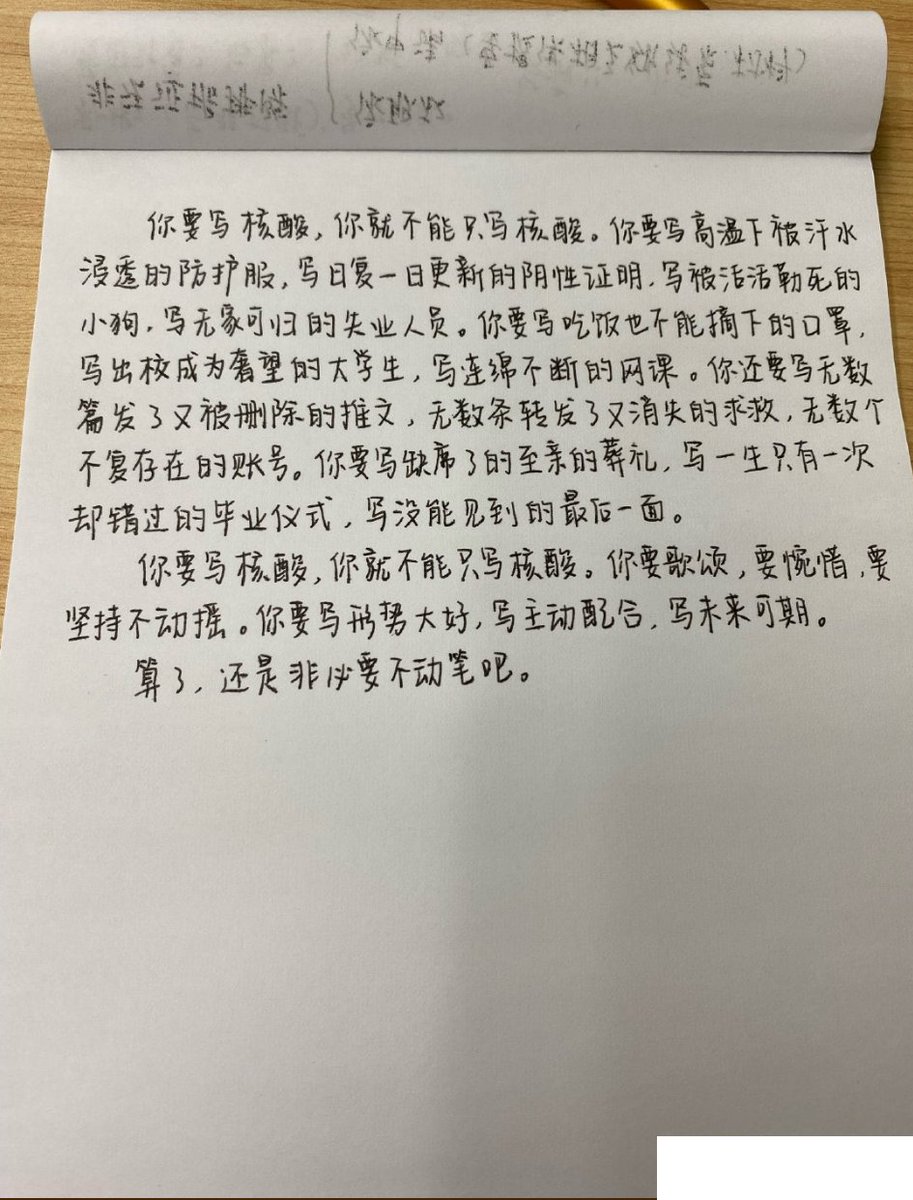 你要写核酸，你就不能只写核酸。你要写高温下被汗水
浸透的防护服，写日复一日更新的阴性证明，写被活活勒死的
小狗，写无家可归的失业人员。你要写吃饭也不能摘下的口罩，
写出校成为奢望的大学生，写连绵不断的网课。你还要写无数
篇发了又被删除的推文，无数条转发了又消失的求救，无数个
不复存在的账号。你要写缺席了的至亲的葬礼，写一生只有一次
却错过的毕业仪式，写没能见到的最后一面。
你要写核酸，你就不能只写核酸。你要歌颂，要惋惜，要
坚持不动摇。你要写形势大好，写主动配合，写未来可期。
算了，还是非必要不动笔吧。